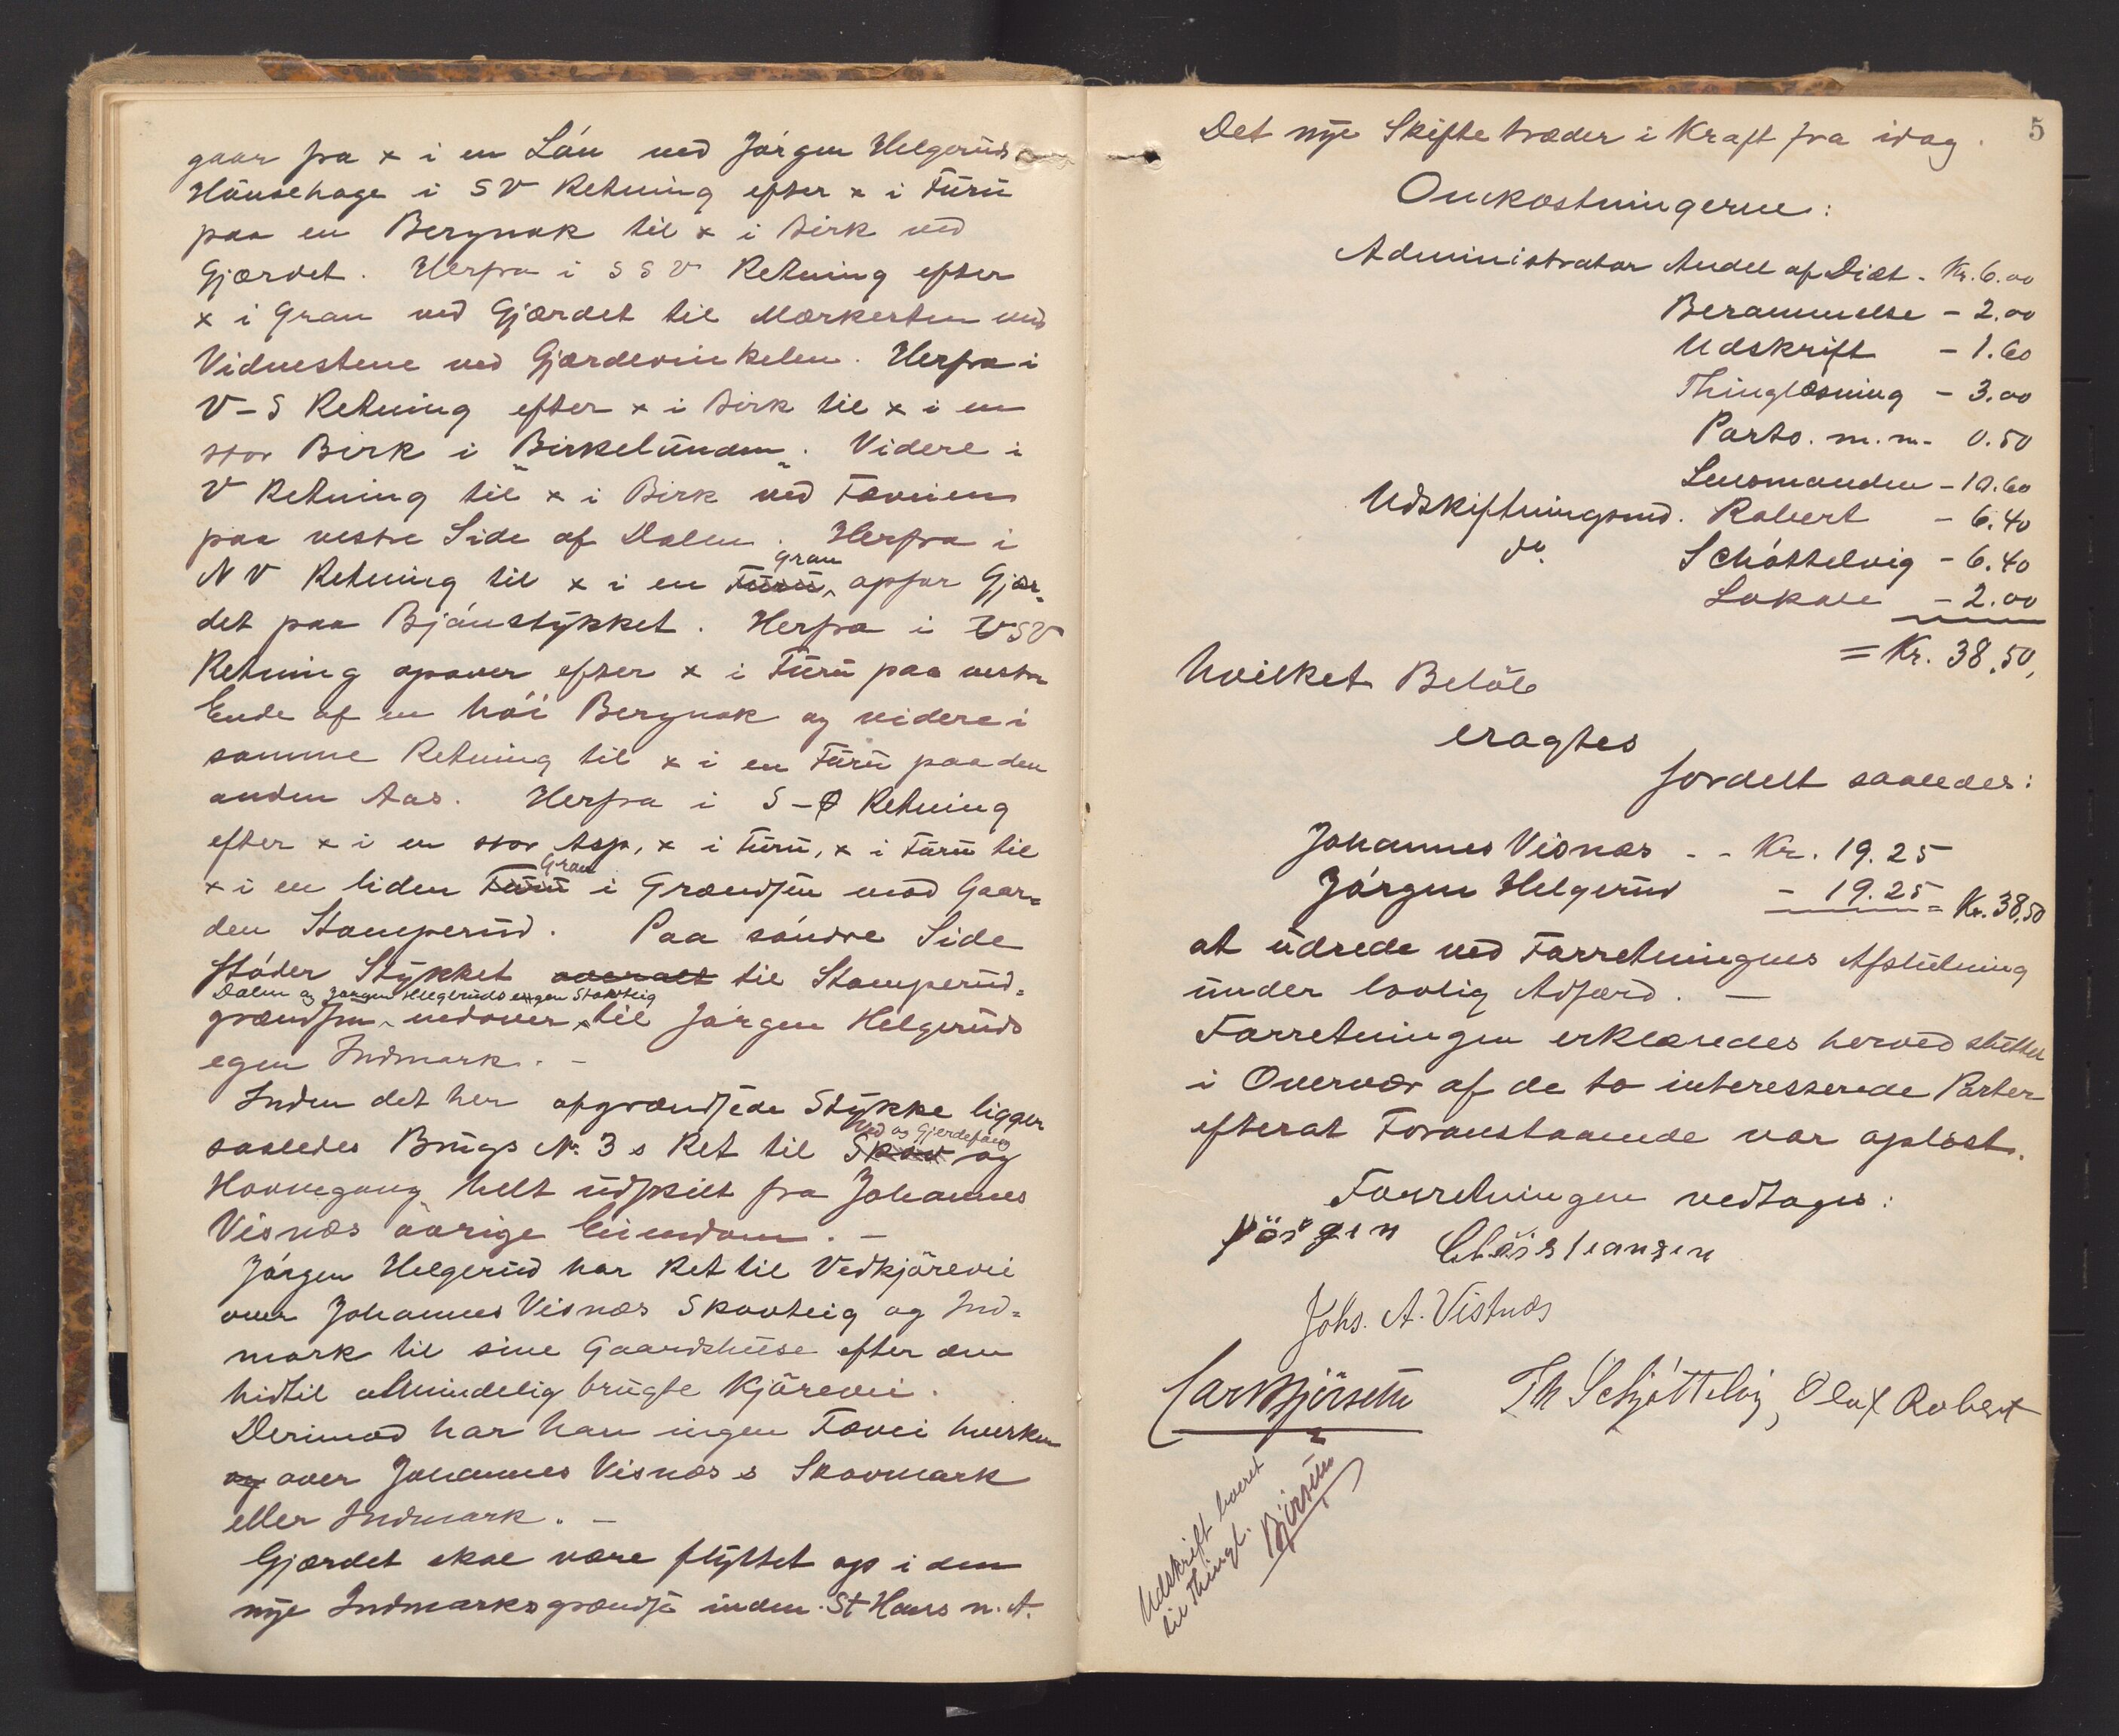 gaar fra x i en Løn ved Jørgen Helgeruds
Hønsehage i SV Retning efter x i Furu
paa en Bergnak til x i Birk ved
Gjærdet. Herfra i SSV Retning efter
x i Gran ved Gjærdet til Mærkesten med
Vidnestene ved Gjærdevinkelen. Herfra i
V-S Retning efter x i Birk til x i en
stor Birk i "Birkelunden". Videre i
V Retning til x i Birk ved Fæveien
paa vestre Side af Dalen. Herfra i
Gran
NV Retning til x i en Furu, opfor Gjær=
det paa Bjønstykket. Herfra i VSV
Retning opover efter x i Furu paa vestre
Ende af en høi Bergnak og videre i
samme Retning til x i en Furu paa den
anden Aas. Herfra i S-Ø Retning
efter x i en stor Asp, x i Furu, x i Furu til
Gran
x i en liden Furu i Grændsen mod Gaar=
den Stamperud. Paa søndre Side
støder Stykket overalt til Stamperud=
Dalen og Jørgen Helgeruds egen Skovteig
grændsen nedover til Jørgen Helgeruds
egen Indmark. -
Inden det her afgrændsede Stykke ligger
Ved og Gjerdefang
saaledes Brugs No. 3 s Ret til Skov og
Havnegang helt udskilt fra Johannes
Visnæs øvrige Eiendom. -
Jørgen Helgerud har Ret til Vedkjørevei
over Johannes Visnæs Skovteig og Ind=
mark til sine Gaardshuse efter den
hidtil almindelig brugte Kjørevei.
Derimod har han ingen Fævei hverken
og over Johannes Visnæs s Skovmark
eller Indmark. -
Gjærdet skal være flyttet op i den
nye Indmarksgrændse inden St Hans n. A.
5
Det nye Skifte træder i Kraft fra idag.
Omkostningerne:
Administrator Andel af Diæt - Kr. 6.00
Berammelse - 2.00
Udskrift - 1.60
Thinglæsning - 3.00
Porto. m.m. - 0.50
Lensmanden - 10.60
Udskiftningsmd. Robert - 6.40
do. Schøttelvig - 6.40
Lokale - 2.00
= Kr. 38.50,
hvilket Beløb
eragtes
fordelt saaledes:
Johannes Visnæs - - Kr. 19.25
Jørgen Helgerud - 19.25 = Kr. 38,50
at udrede ved Forretningens Afslutning
under lovlig Adfærd. -
Forretningen erklæredes herved sluttet
i Overvær af de to interesserede Parter
efterat Foranstaaende var oplæst.
Forretningen vedtages:
Jörgen Christiansen
Johs. A. Vistnæs
Carl Bjørseth Th Schjøttelvig, Olaf Robert
Udskrift leveret
til Thingl.
Bjørseth